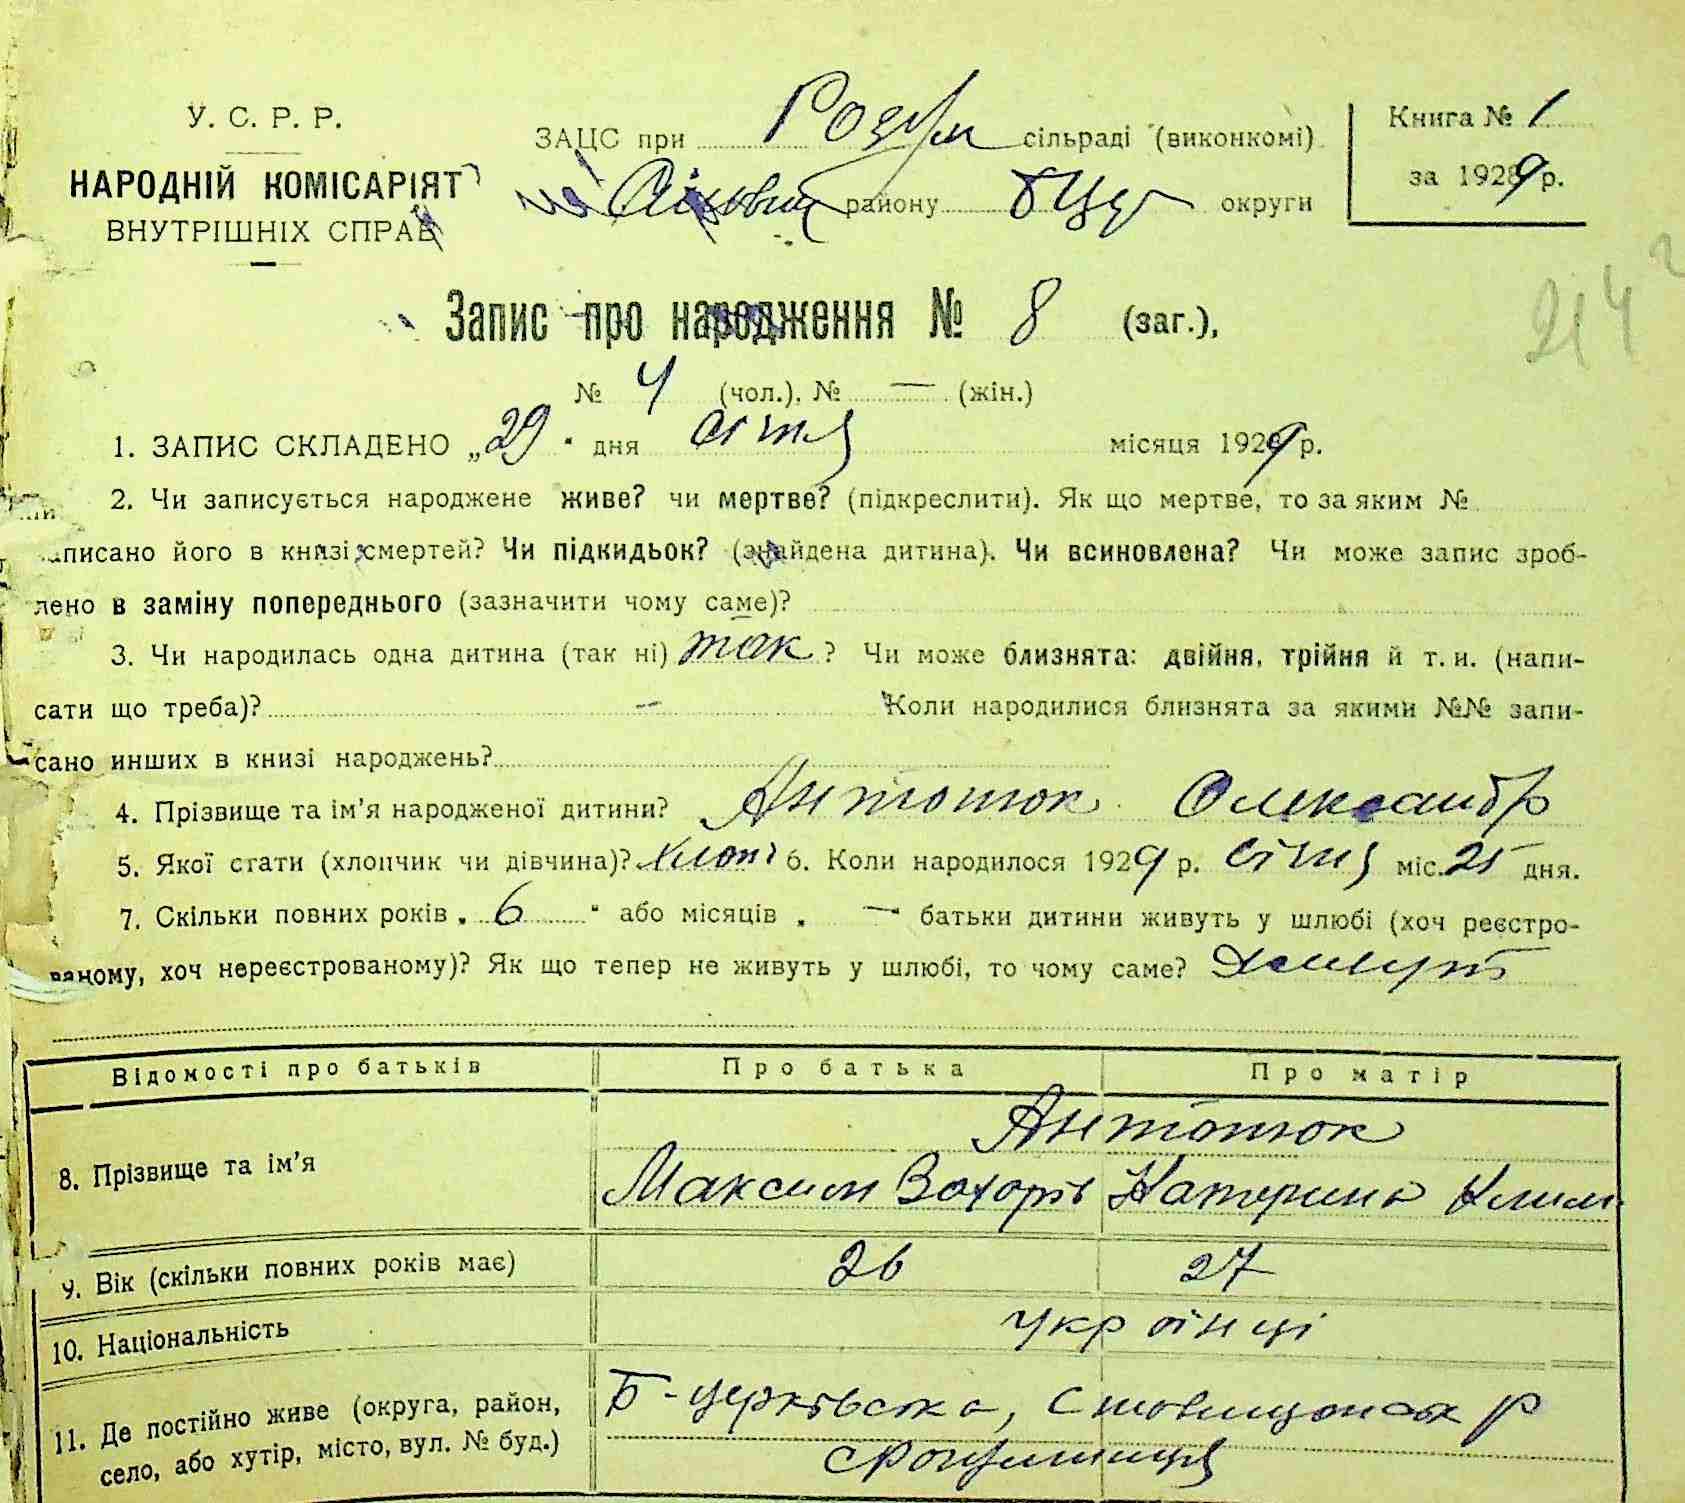 У. С. Р. Р.
НАРОДНІЙ КОМІСАРІЯТ
ВНУТРІШНІХ СПРАВ
ЗАЦС при сільраді (виконкомі)
району БЦ округи
Книга № 1
за 1929 р.
214
Запис про народження № 8 (заг.),
№ 4 (чол.), № — (жін.)
1. ЗАПИС СКЛАДЕНО „29" дня січня місяця 1929 р.
2. Чи записується народжене живе? чи мертве? (підкреслити). Як що мертве, то за яким №
записано його в книзі смертей? Чи підкидьок? (знайдена дитина). Чи всиновлена? Чи може запис зроб-
лено в заміну попереднього (зазначити чому саме)?
3. Чи народилась одна дитина (так ні) так ? Чи може близнята: двійня, трійня й т. и. (напи-
сати що треба)? — Коли народилися близнята за якими №№ запи-
сано инших в книзі народжень?
4. Прізвище та ім'я народженої дитини? Антонюк Олександр
5. Якої стати (хлопчик чи дівчина)? хлоп 6. Коли народилося 1929 р. січня міс. 25 дня.
7. Скільки повних років „ 6 " або місяців „ — " батьки дитини живуть у шлюбі (хоч реєстро-
ваному, хоч нереєстрованому)? Як що тепер не живуть у шлюбі, то чому саме? живуть
Відомості про батьків Про батька Про матір
8. Прізвище та ім'я Антонюк
Максим Захорів Катерина Клим.
9. Вік (скільки повних років має) 26 27
10. Національність українці
11. Де постійно живе (округа, район,
село, або хутір, місто, вул. № буд.)
Б-церківська, Ставищанськ р